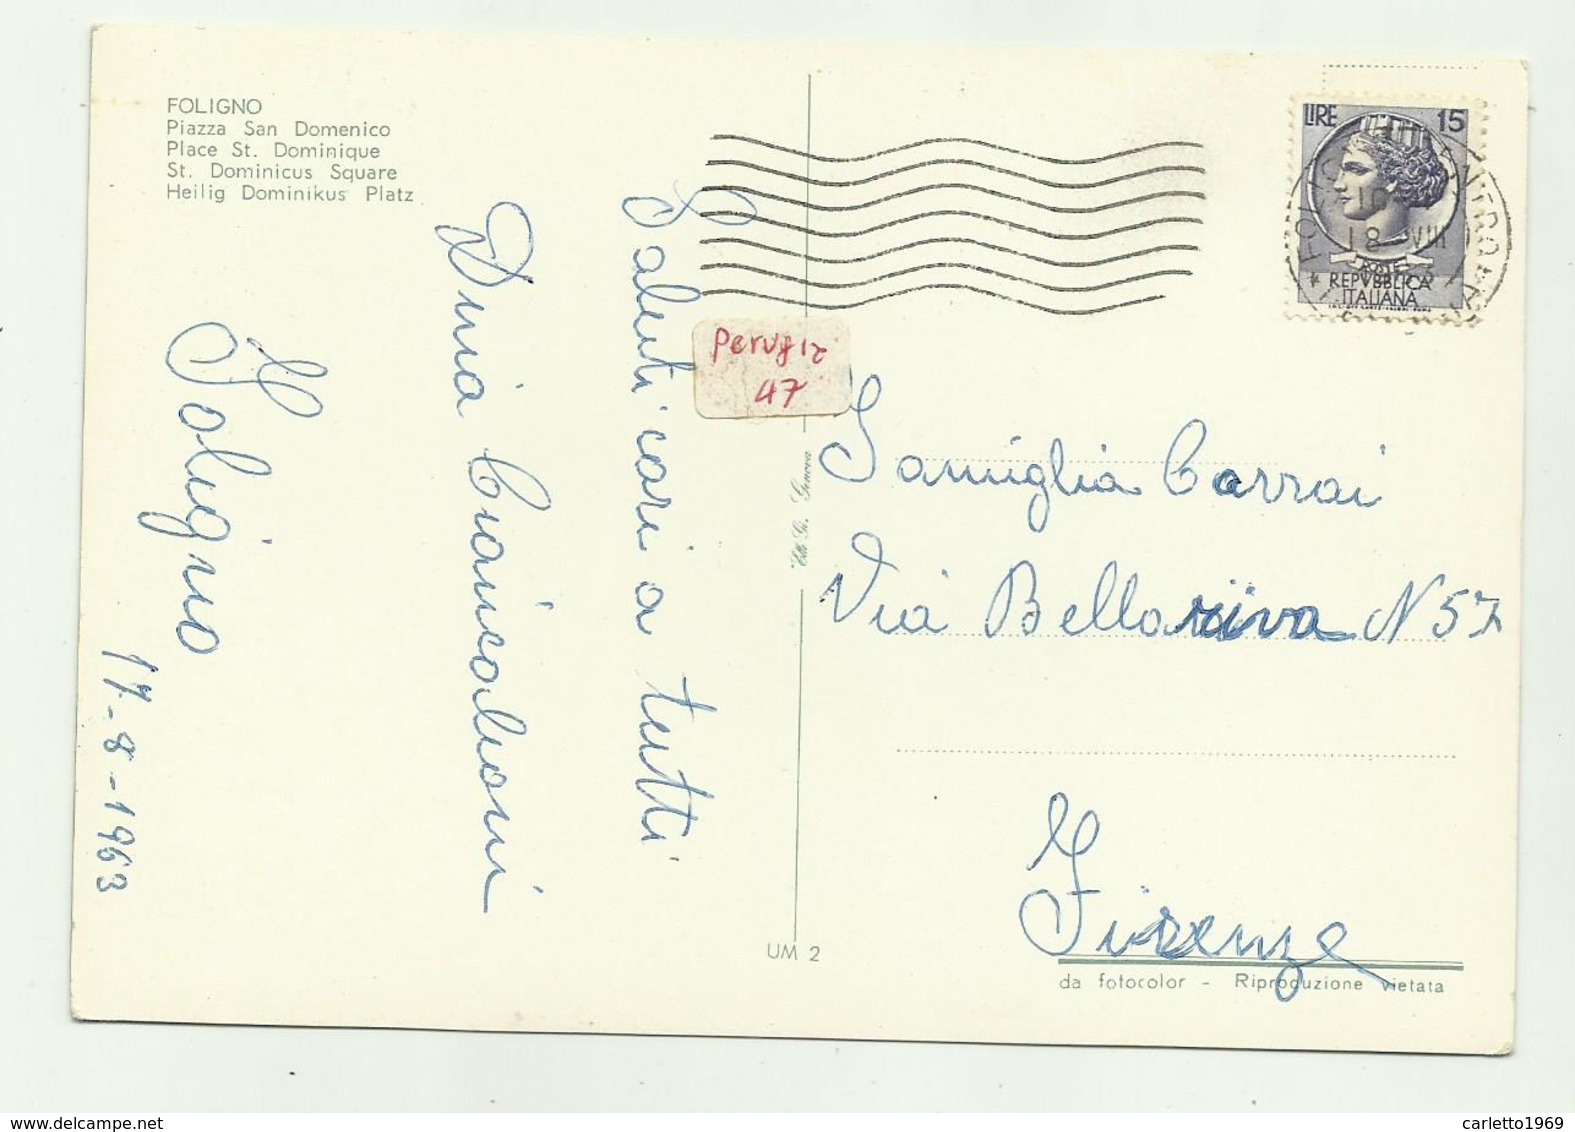 FOLIGNO
Piazza San Domenico
Place St. Dominique
St. Dominicus Square
Heilig Dominikus Platz
Foligno
17-8-1963
Saluti cari a tutti
Perugia
47
UM 2
LIRE 15
18 VIII
POSTE
REPVBBLICA
ITALIANA
Famiglia Carrai
Via Bellariva N 57
Firenze
da fotocolor - Riproduzione vietata
delcampe.net
carletto1969